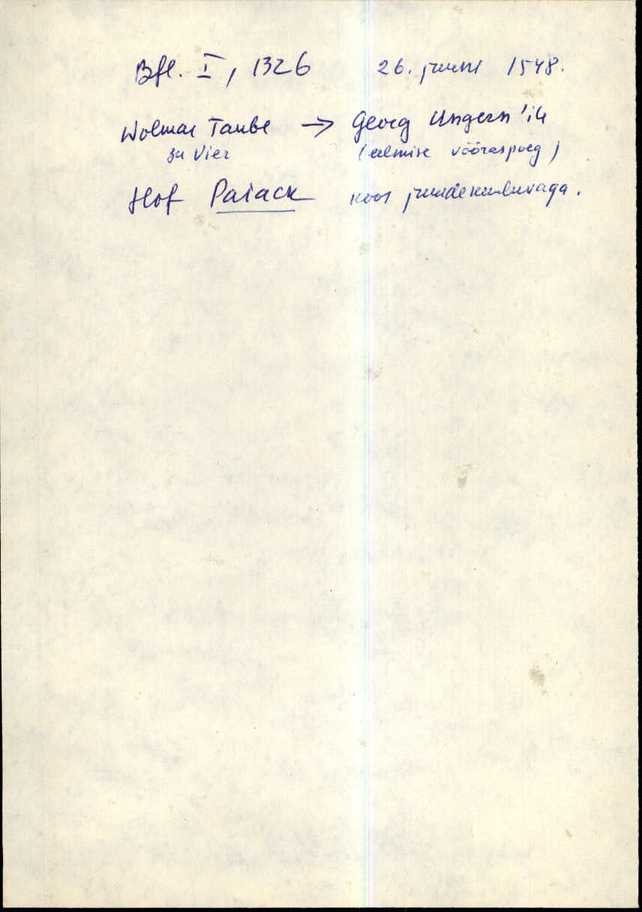 Bfl. I, 1326 26. juuni 1548.
Wolmar Taube → Georg Ungern'ile
zu Vier (eelmise võõraspoeg)
Hof Paiack koos juurdekuuluvaga.